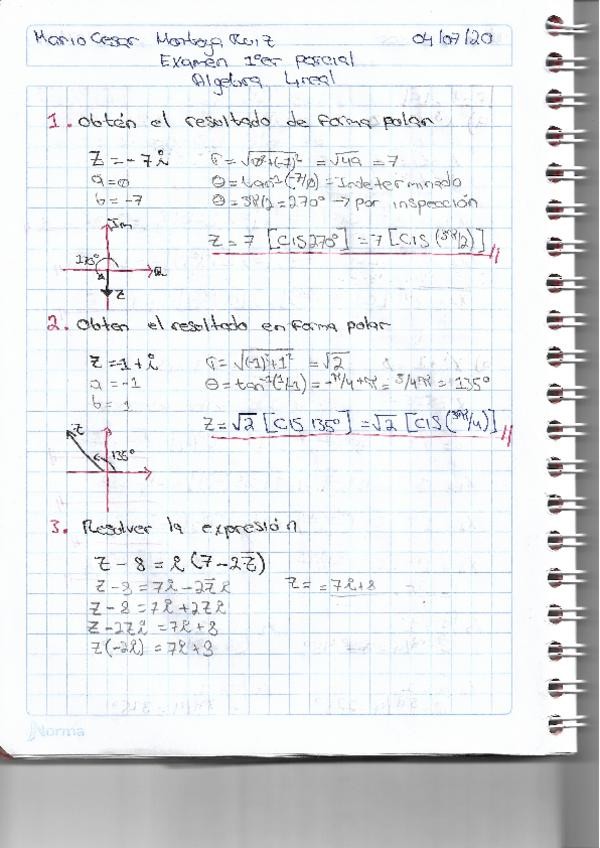 Mario Cesar Montoya Ruiz 04/07/20
Examen 1°er parcial
Algebra Lineal
1. Obtén el resultado de forma polar
Z = -7i r = √(0²+(-7)²) = √49 = 7
a = 0 θ = tan⁻¹(-7/0) = Indeterminado
b = -7 θ = 3π/2 = 270° → Por inspección
Im
Z = 7 [CIS 270°] = 7 [CIS (3π/2)]
270° R
Z
2. Obten el resultado en forma polar
Z = -1 + i r = √((-1)²+1²) = √2
a = -1 θ = tan⁻¹(1/-1) = -π/4 + π = 3/4 π = 135°
b = 1
Z = √2 [CIS 135°] = √2 [CIS (3π/4)]
Z
135°
3. Resolver la expresión
Z - 8 = i (7 - 2Z̄)
Z - 8 = 7i - 2Z̄i Z = = 7i + 8
Z - 8 = 7i + 2Zi
Z - 2Zi = 7i + 8
Z(-2i) = 7i + 8
Norma